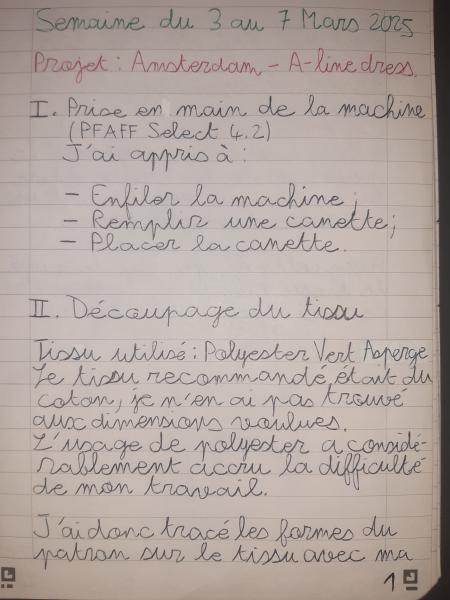 Semaine du 3 au 7 Mars 2025
Projet : Amsterdam - A-line dress.
I. Prise en main de la machine
(PFAFF Select 4.2)
J'ai appris à :
- Enfiler la machine ;
- Remplir une canette;
- Placer la canette.
II. Découpage du tissu
Tissu utilisé : Polyester Vert Asperge
Le tissu recommandé était du
coton, je n'en ai pas trouvé
aux dimensions voulues.
L'usage de polyester a considé-
rablement accru la difficulté
de mon travail.
J'ai donc tracé les formes du
patron sur le tissu avec ma
1